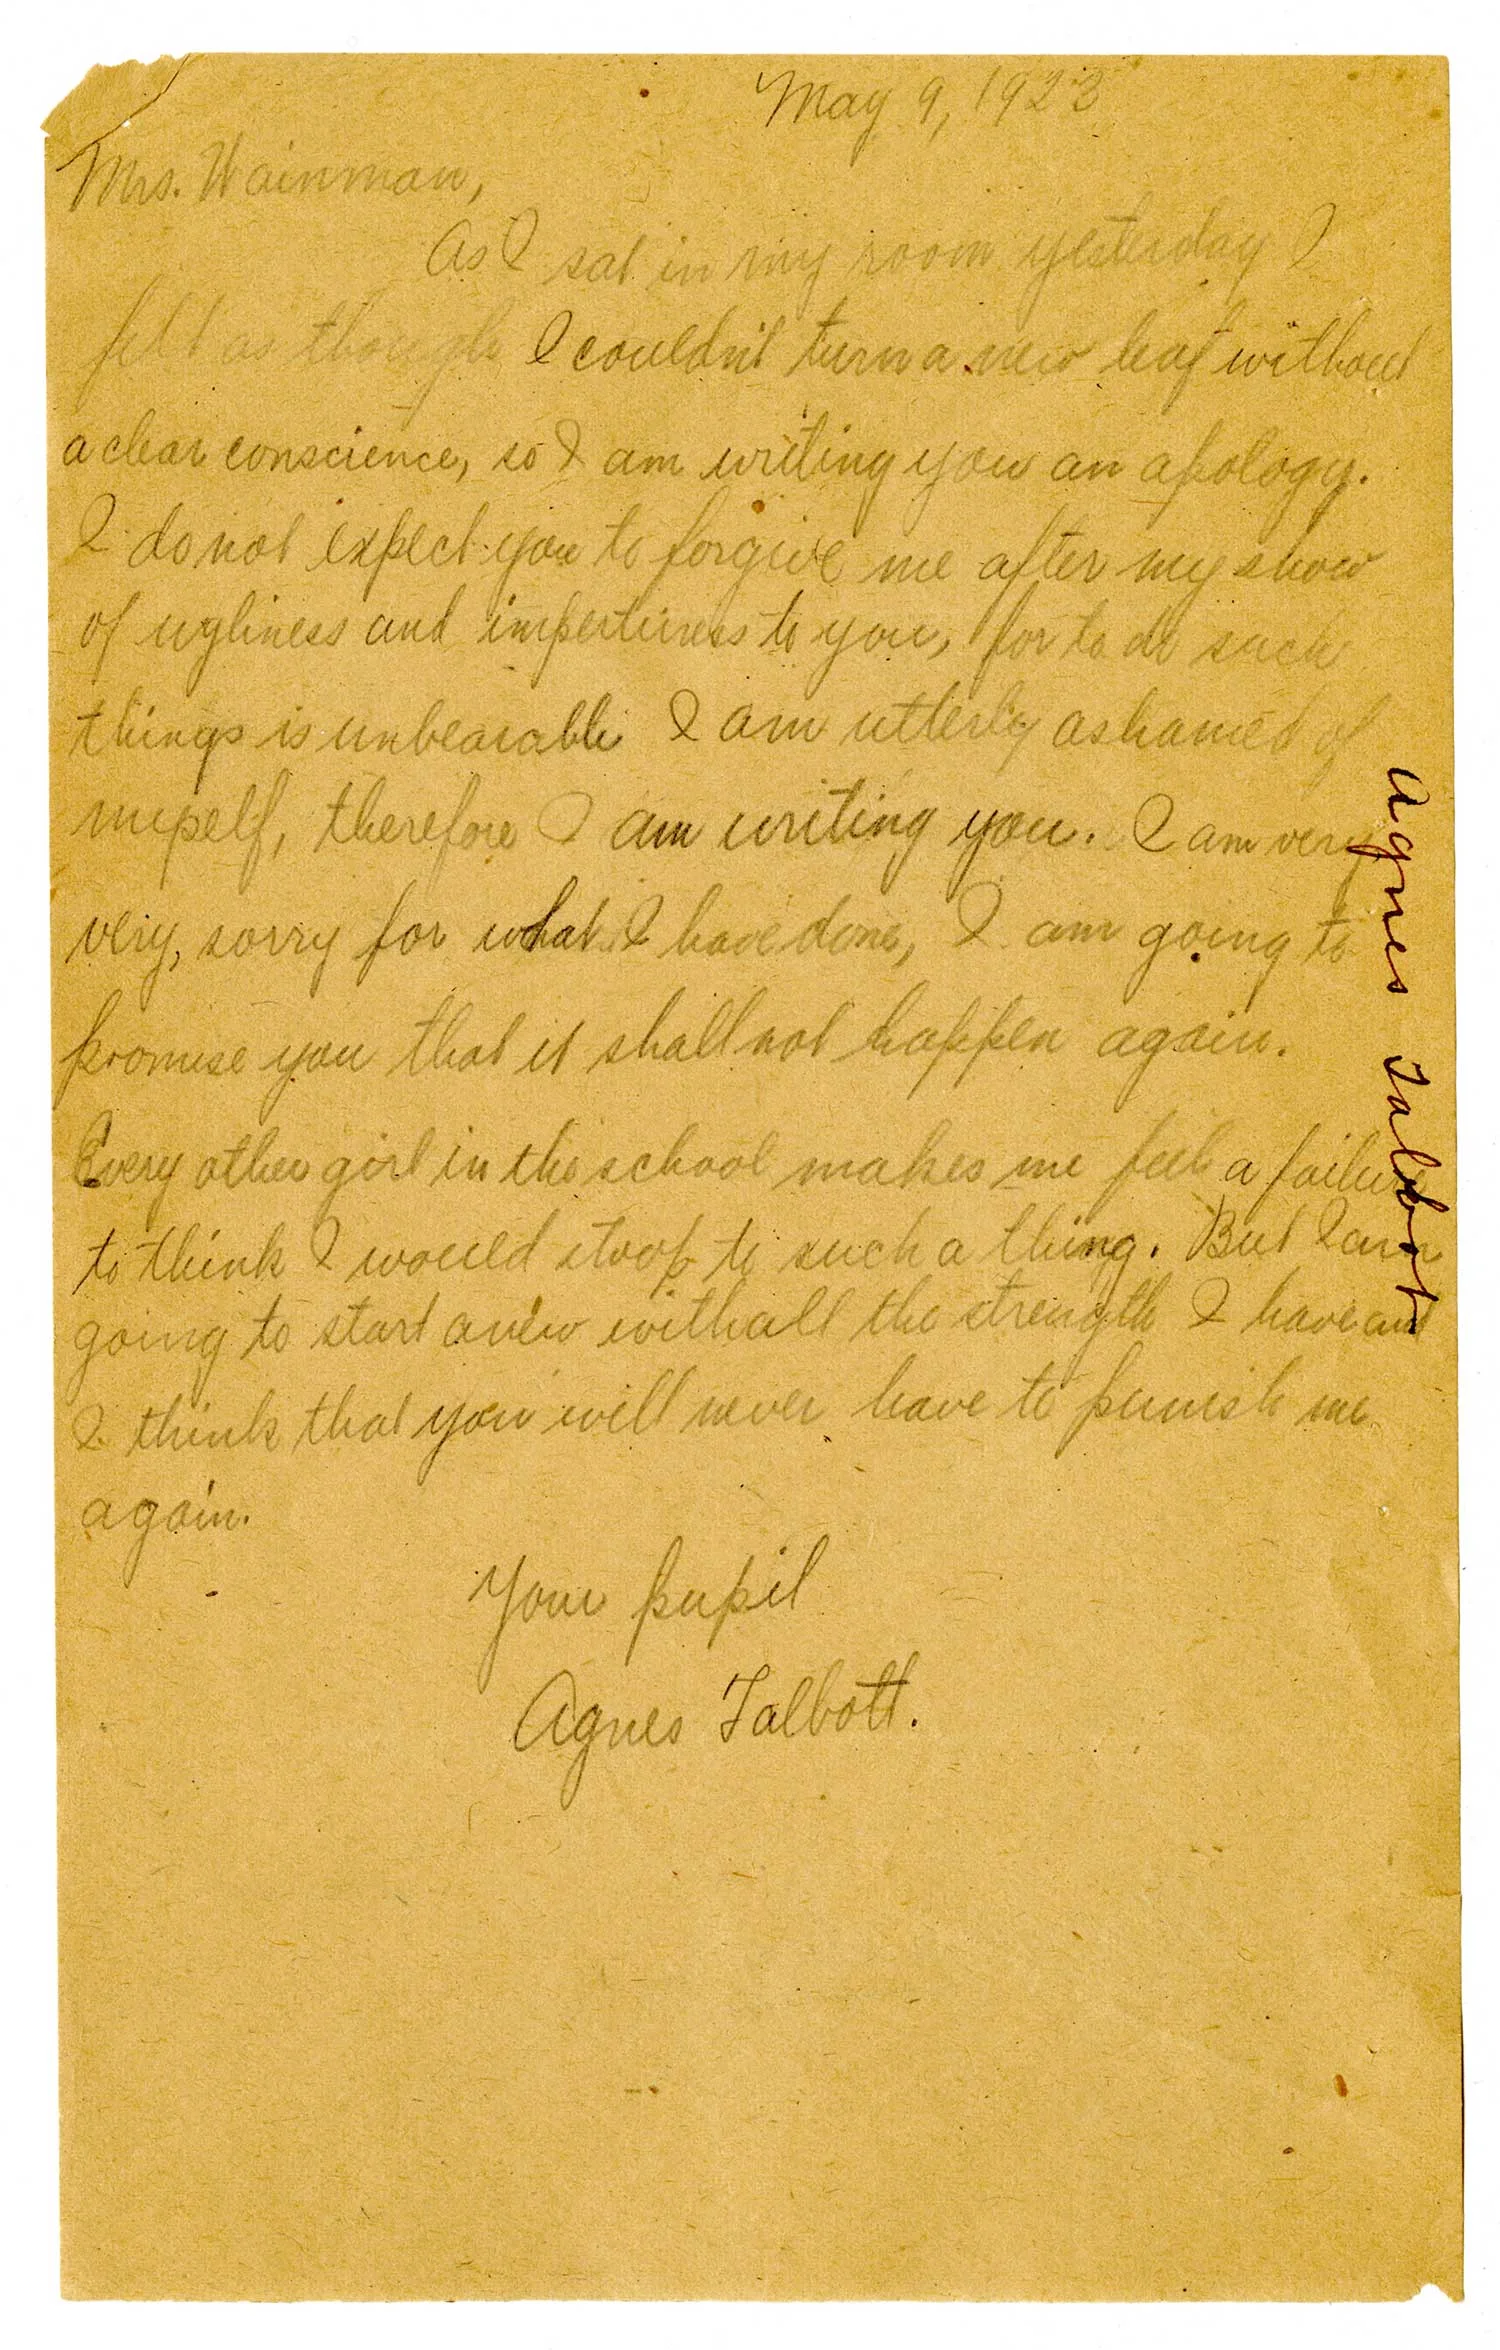 May 9, 1923
Mrs. Wainman,
As I sat in my room yesterday I
felt as though I couldn't turn a new leaf without
a clear conscience, so I am writing you an apology.
I do not expect you to forgive me after my show
of ugliness and impertiness to you, for to do such
things is unbearable I am utterly ashamed of
myself, therefore I am writing you. I am very
very, sorry for what I have done, I am going to
promise you that it shall not happen again.
Every other girl in the school makes me feel a failure
to think I would stoop to such a thing. But I am
going to start anew with all the strength I have and
I think that you will never have to punish me
again.
Your pupil
Agnes Talbott.
Agnes Talbot